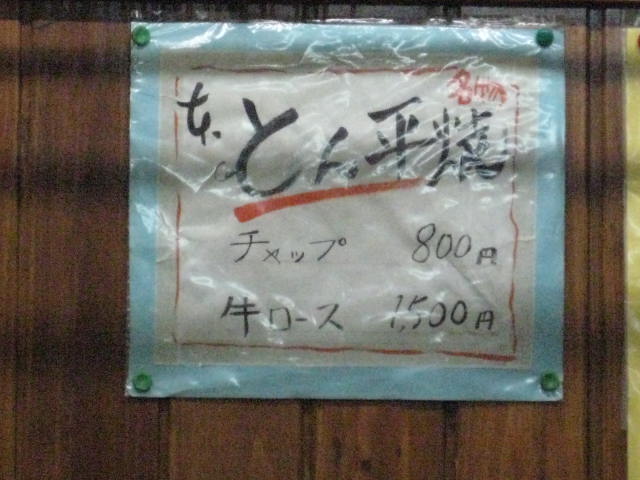 とん平焼
チャップ 800円
牛ロース 1,500円